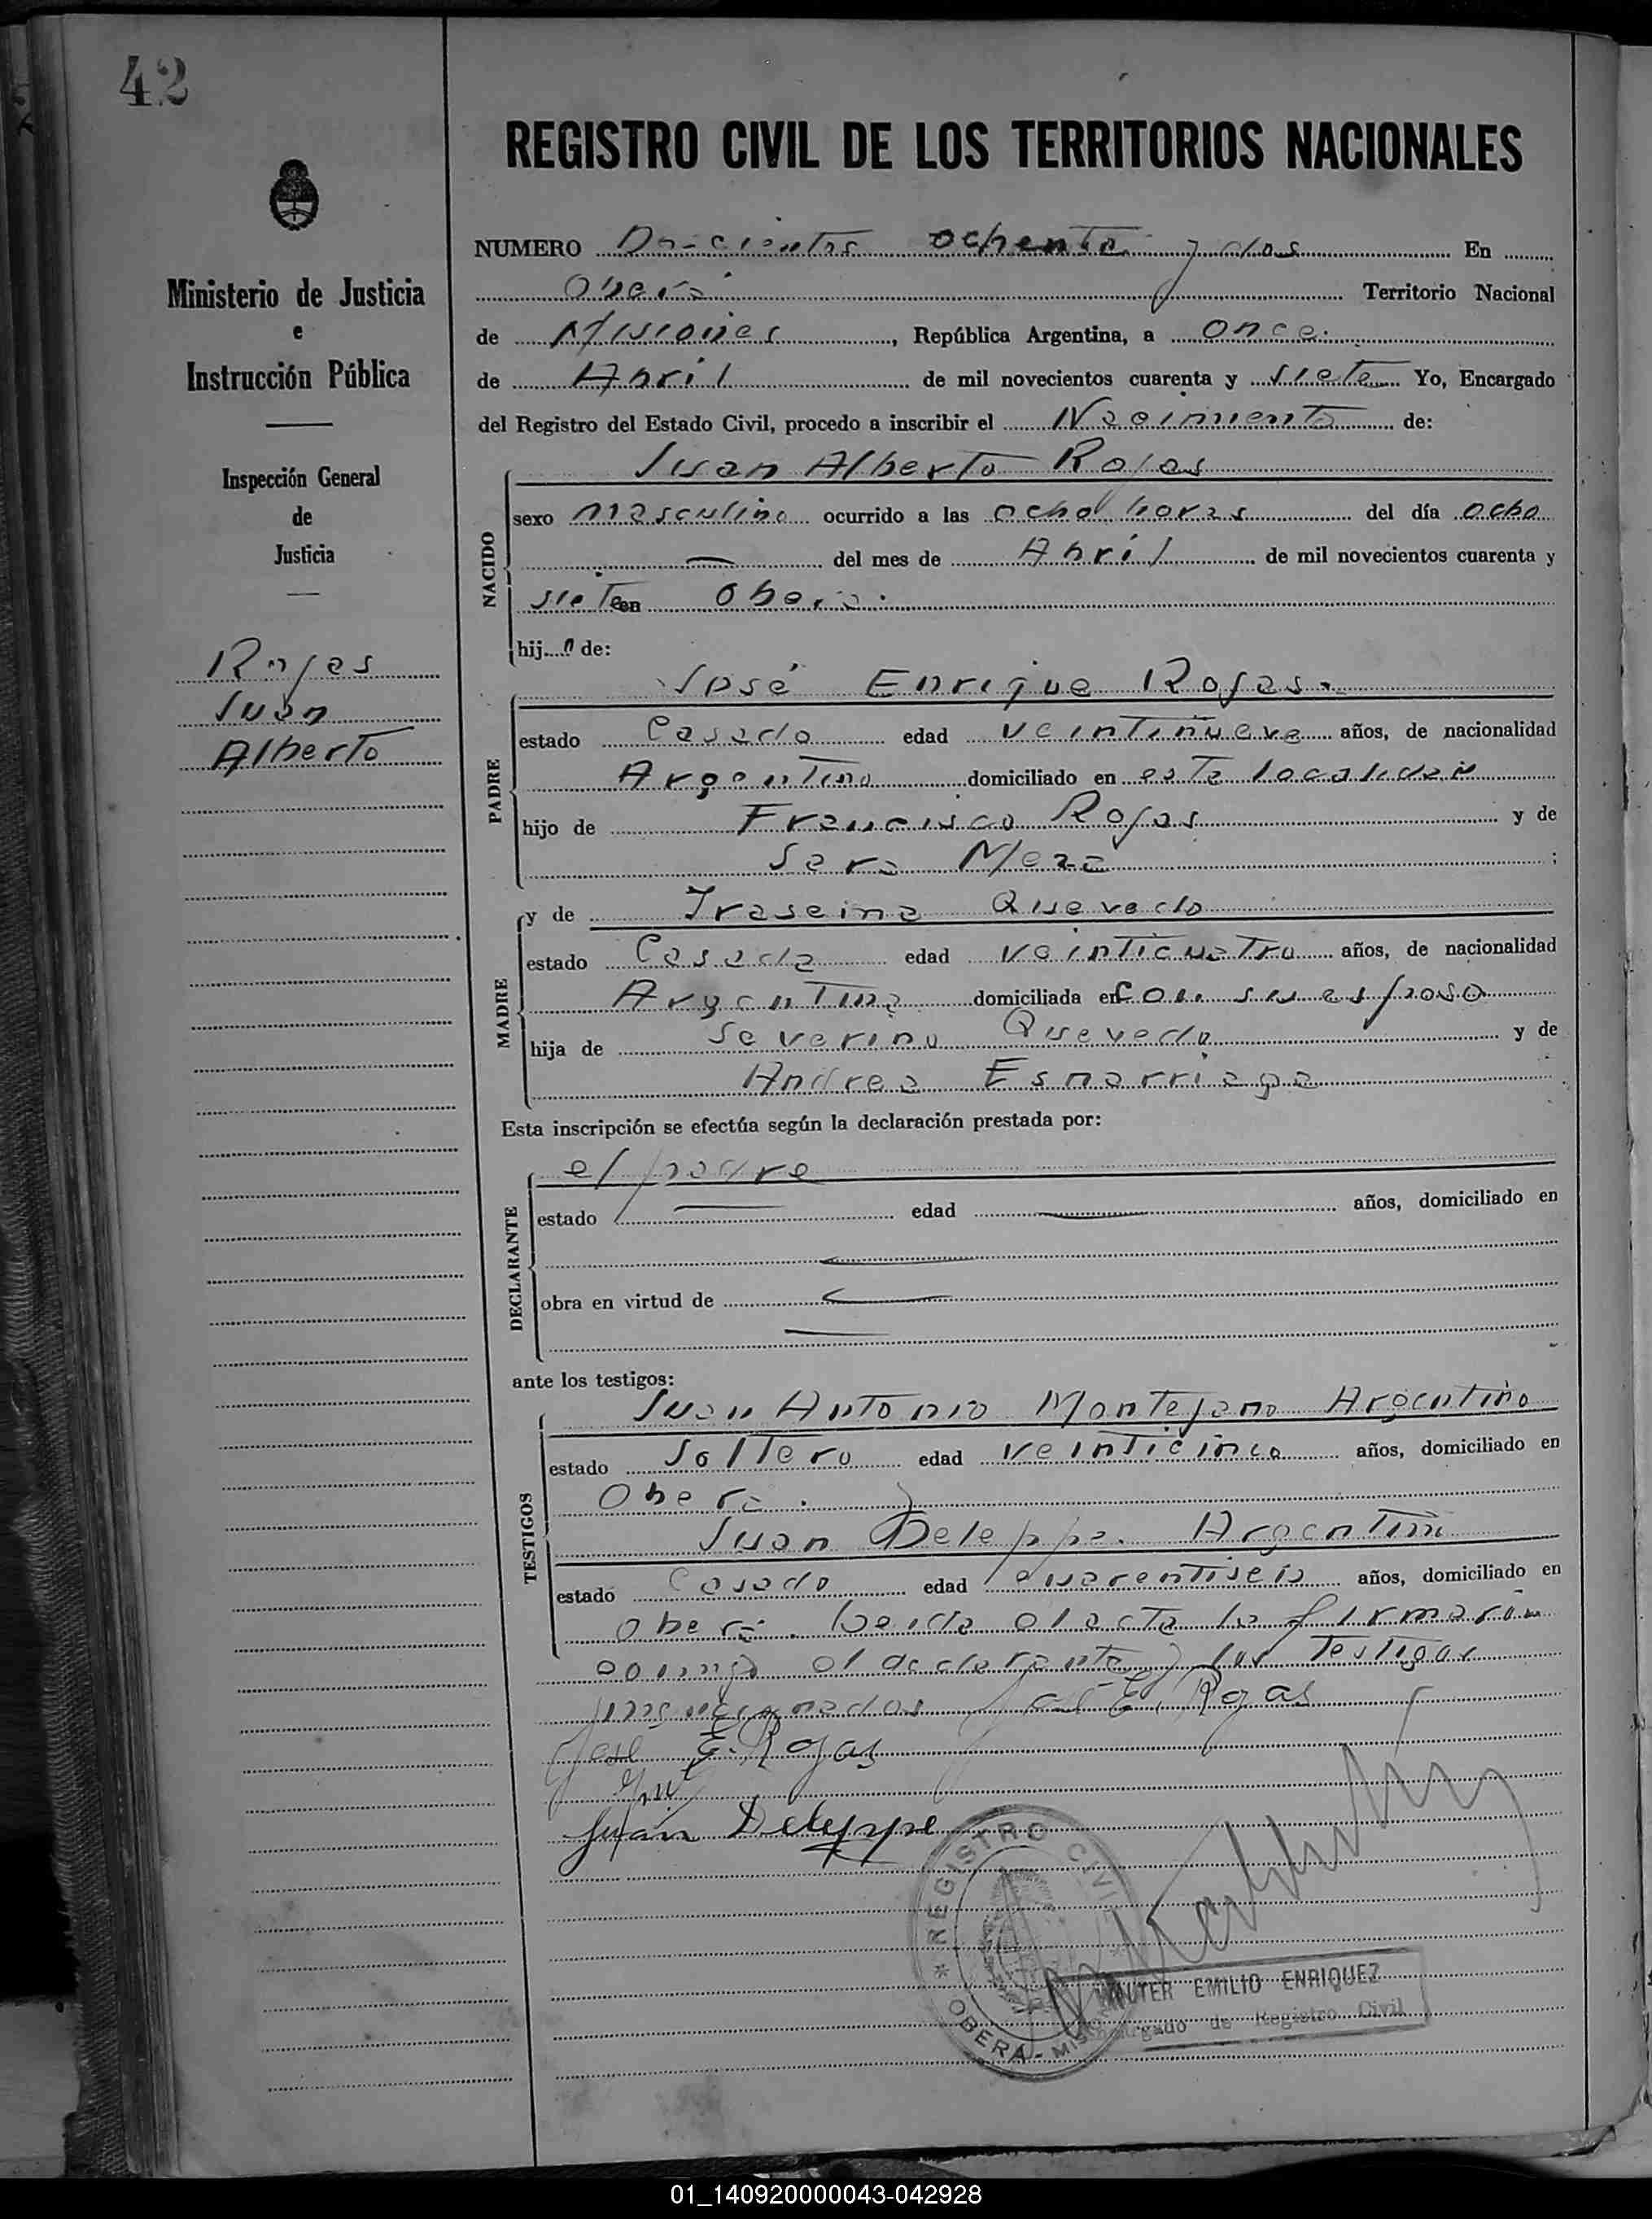 42
REGISTRO CIVIL DE LOS TERRITORIOS NACIONALES
Ministerio de Justicia
e
Instrucción Pública
Inspección General
de
Justicia
Rojas
Juan
Alberto
NUMERO Doscientos ochenta y dos En
Oberá Territorio Nacional
de Misiones, República Argentina, a once
de Abril de mil novecientos cuarenta y siete Yo, Encargado
del Registro del Estado Civil, procedo a inscribir el Nacimiento de:
NACIDO
Juan Alberto Rojas
sexo masculino ocurrido a las ocho horas del día ocho
— del mes de Abril de mil novecientos cuarenta y
siete en Oberá.
hijo de:
PADRE
José Enrique Rojas.
estado Casado edad veintinueve años, de nacionalidad
Argentina domiciliado en esta localidad
hijo de Francisco Rojas y de
Sara Meza;
MADRE
y de Iraseina Quevedo
estado Casada edad veinticuatro años, de nacionalidad
Argentina domiciliada en con su esposo
hija de Severino Quevedo y de
Andrea Esnarriaga
Esta inscripción se efectúa según la declaración prestada por:
DECLARANTE
el padre
estado — edad — años, domiciliado en
—
obra en virtud de —
—
ante los testigos:
TESTIGOS
Juan Antonio Montejano Argentino
estado Soltero edad veinticinco años, domiciliado en
Oberá.
Juan Deleppe. Argentino
estado Casado edad cuarentiseis años, domiciliado en
Oberá. Leida el acta la firmaron
conmigo el declarante y los testigos
mencionados José E. Rojas
José E. Rojas
Juan Deleppe
REGISTRO CIVIL
* OBERA - MIS
WALTER EMILIO ENRIQUEZ
Encargado de Registro Civil
01_140920000043-042928